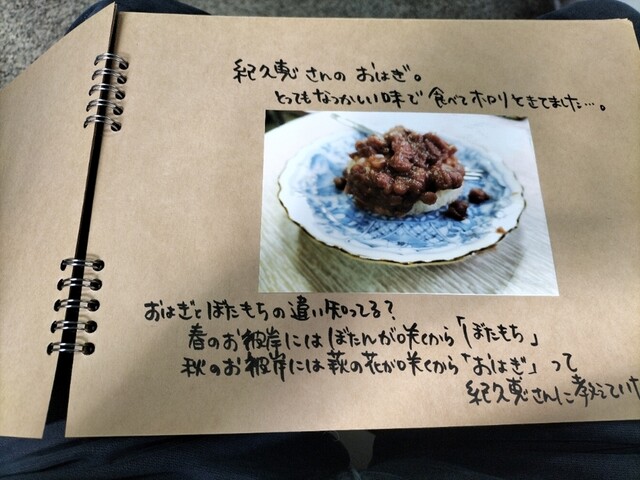 紀久恵さんの おはぎ。
とってもなつかしい味で 食べてホロリときてました…。
おはぎとぼたもちの違い知ってる?
春のお彼岸にはぼたんが咲くから「ぼたもち」
秋のお彼岸には萩の花が咲くから「おはぎ」って
紀久恵さんに教えていた